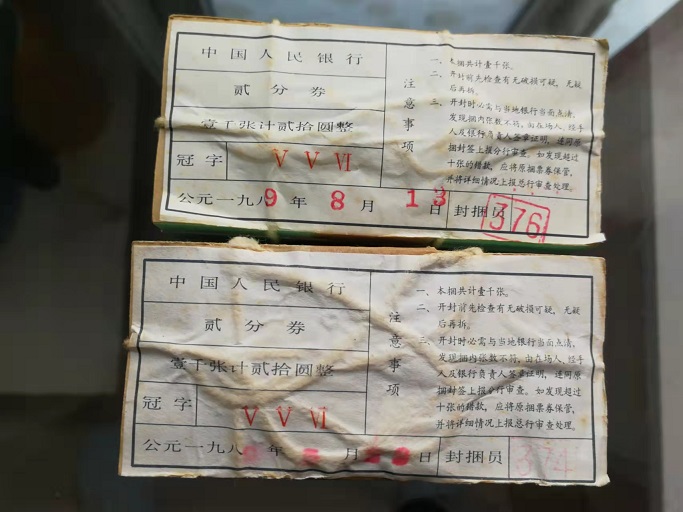 中国人民银行
贰分券
壹千张计贰拾圆整
冠字 V V VI
公元一九八9年8月13日
注意事项
一、本捆共计壹千张。
二、开封前先检查有无破损可疑，无疑
后再拆。
三、开封时必需与当地银行当面点清，
发现捆内张数不符，由在场人、经手
人及银行负责人签章证明，连同原
捆封签上报分行审查。如发现超过
十张的错款，应将原捆票券保管，
并将详细情况上报总行审查处理。
封捆员 376
中国人民银行
贰分券
壹千张计贰拾圆整
冠字 V V VI
公元一九八 年 月 日
注意事项
一、本捆共计壹千张。
二、开封前先检查有无破损可疑，无疑
后再拆。
三、开封时必需与当地银行当面点清，
发现捆内张数不符，由在场人、经手
人及银行负责人签章证明，连同原
捆封签上报分行审查。如发现超过
十张的错款，应将原捆票券保管，
并将详细情况上报总行审查处理。
封捆员 374